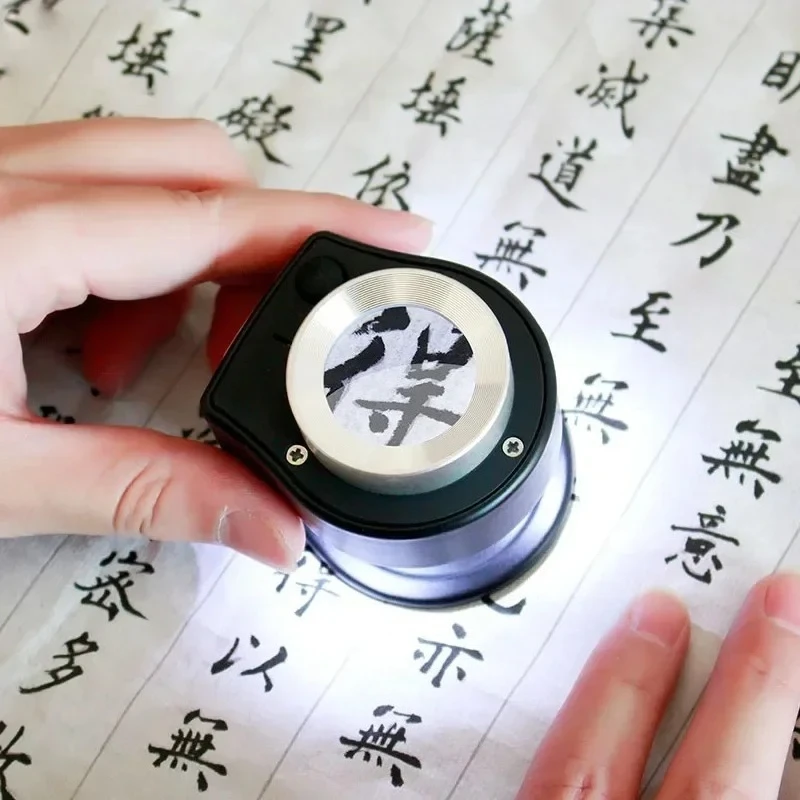 至無意
盡乃至無亦無
集滅道無得以無
薩埵依密多
罣礙
埵
得